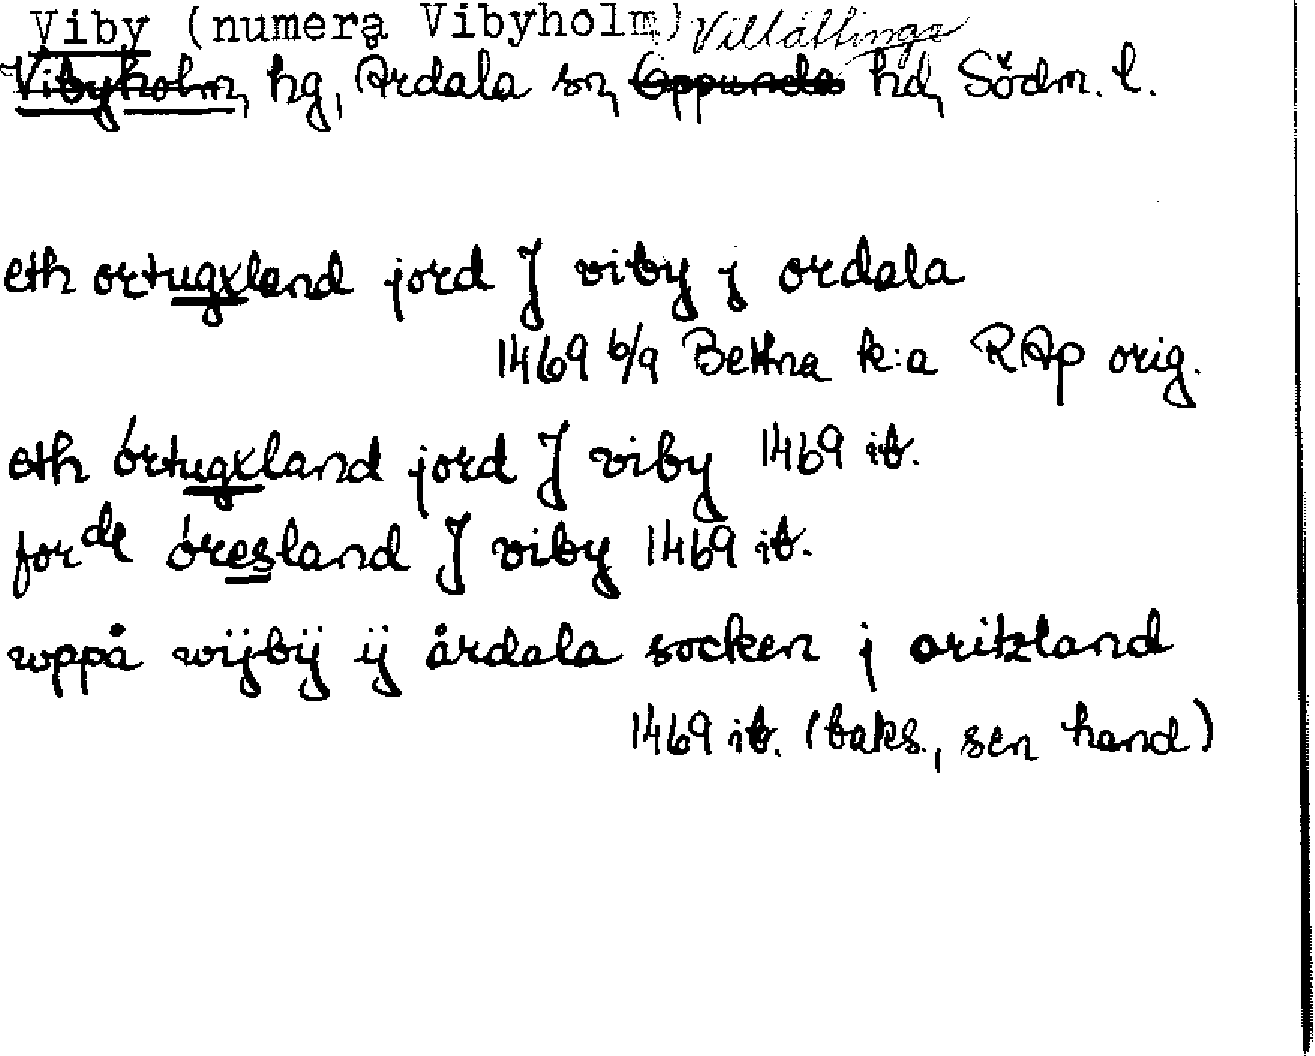 Viby (numera Vibyholm) Villåttinge
Vibyholm, hg, Årdala sn, Oppunda hd, Södm. l.
eth ortugxland jord J viby j ordala
1469 6/9 Bettna k:a RAp orig.
eth órtugxland jord J viby 1469 ib.
for de óresland J viby 1469 ib.
wppå wijbij ij årdala socken j oritzland
1469 ib. (baks., sen hand)